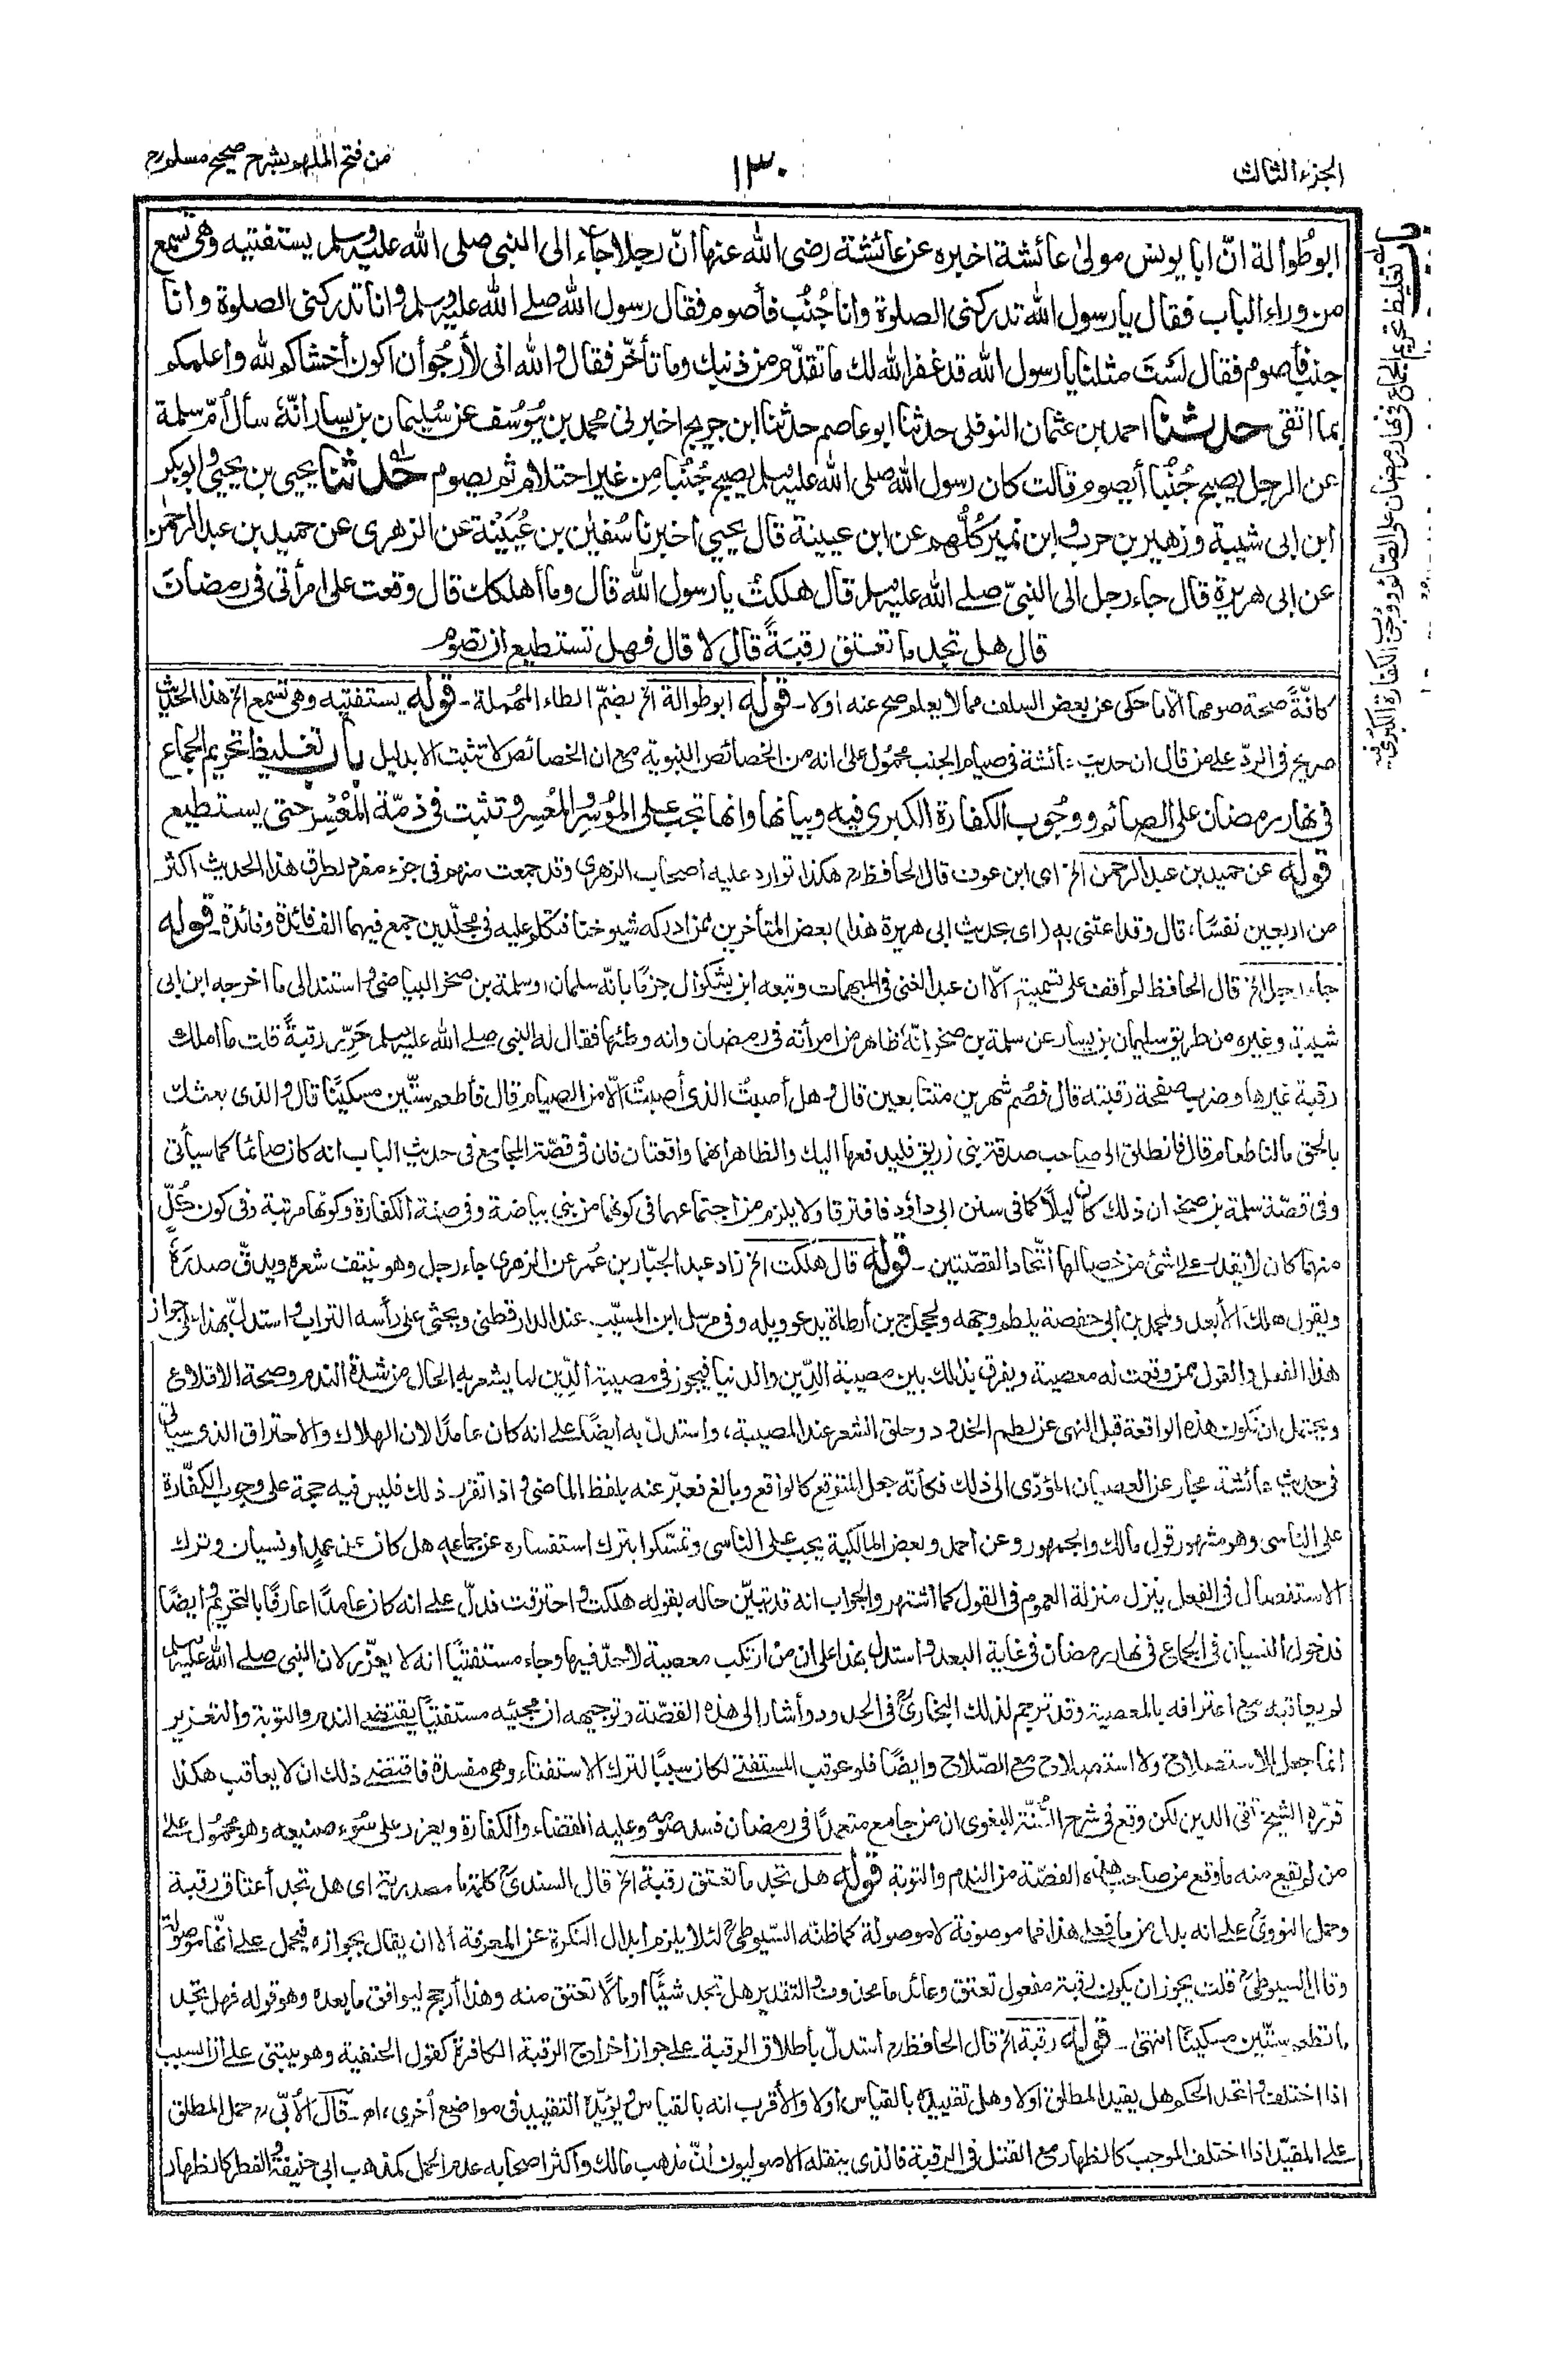 الجزء الثالث
١٣٠
من فتح الملهم بشرح صحيح مسلم رح
باب تغليظ تحريم الجماع في نهار رمضان على الصائم ووجوب الكفارة الكبرى فيه
ابو طُوالة انّ ابا يونس مولى عائشة اخبره عن عائشة رضى الله عنها انّ رجلا جاء الى النبي صلى الله عليه وسلم يستفتيه وهى تسمع
من وراء الباب فقال يا رسول الله تدركنى الصلوة وانا جُنُبٌ فأصوم فقال رسول الله صلے الله عليه وسلم وانا تدركنى الصلوة وانا
جنب فأصوم فقال لسْتَ مثلنا يا رسول الله قد غفر الله لك ما تقدّم من ذنبك وما تأخّر فقال والله انى لأرجُو أن اكون أخشاكم لله واعلمكم
بما اتقى حدثنا احمد بن عثمان النوفلى حدثنا ابو عاصم حدثنا ابن جريج اخبرنى محمد بن يُوسُف عن سُليمان بن يسار انّهٗ سأل اُمّ سلمة
عن الرجل يصبح جُنُبًا أيصوم قالت كان رسول الله صلى الله عليه وسلم يصبح جُنُبًا مِن غير احتلام ثم يصوم حدثنا يحيى بن يحيى وابوبكر
ابن ابى شيبة وزهير بن حرب وابن نمير كُلُّهم عن ابن عيينة قال يحيى اخبرنا سُفين بن عُيَيْنة عن الزهرى عن حميد بن عبد الرحمٰن
عن ابى هريرة قال جاء رجل الى النبىّ صلے الله عليه وسلم قال هلكتُ يا رسول الله قال وما أهلكك قال وقعت على امرأتى فى رمضان
قال هل تجد ما تعتق رقبَةً قال لا قال فهل تستطيع ان تصوم
كانّةً صحة صومها الّا ما حكى عن بعض السلف مما لا يعلم صح عنه اولا ـ قوله ابو طوالة الخ بضمّ الطاء المهملة ـ قوله يستفتيه وهى تسمع الخ هذا الحديث
صريح فى الردّ على من قال ان حديث عائشة فى صيام الجنب محمول على انه من الخصائص النبويّة مع ان الخصائص لا تثبت الا بدليل باب تغليظ تحريم الجماع
فى نهار رمضان على الصائم ووجُوب الكفارة الكبرى فيه وبيانها وانها تجب على المُوسِر والمُعْسِر وتثبت فى ذمّة المُعْسِر حتى يستطيع
قوله عن حميد بن عبد الرحمن الخ اى ابن عوف قال الحافظ رح هكذا توارد عليه اصحاب الزهرى وقد جمعت منهم فى جزء مفرد لطرق هذا الحديث اكثر
من اربعين نفسًا، قال وقد اعتنى به (اى بحديث ابى هريرة هذا) بعض المتأخرين ممن ادركه شيوخنا فتكلم عليه فى مجلّدين جمع فيهما الف فائدة وفائدة ـ قوله
جاء رجل الخ قال الحافظ لم أقف على تسميته الّا ان عبد الغنى فى المبهمات وتبعه ابن بشكوال جزمًا بانّه سلمان او سلمة بن صخر البياضى واستند الى ما اخرجه ابن ابى
شيبة وغيره من طريق سليمان بن يسار عن سلمة بن صخر انّهٗ ظاهر من امرأته فى رمضان وانه وطئها فقال له النبى صلے الله عليه وسلم حَرِّر رقبةً قلت ما املك
رقبة غيرها وضرب صفحة رقبته قال فصُم شهرين متتابعين قال وهل أصبتُ الذى أصبتُ الّا من الصيام قال فأطعم ستّين مسكينًا قال والذى بعثك
بالحق ما لنا طعام قال فانطلق الى صاحب صدقة بنى زريق فليدفعها اليك والظاهر انهما واقعتان فان فى قصّة المجامع فى حديث الباب انه كان صائما كما سيأتى
وفى قصّة سلمة بن صخر ان ذلك كان ليلًا كما فى سنن ابى داؤد فافترقا ولا يلزم من اجتماعهما فى كونهما من بنى بياضة وفى صفة الكفارة وكونها مرتبة وفى كون كُلٍّ
منهما كان لا يقدر على شئ من خصالها اتّحاد القصّتين ـ قوله قال هلكت الخ زاد عبد الجبّار بن عُمر عن الزهرى جاء رجل وهو ينتف شعره ويدقّ صدرَهٗ
ويقول هلك الأبعد ولمحمد بن أبى حفصة يلطم وجهه ولحجاج بن أرطاة يدعو ويله وفى مرسل ابن المسيّب عند الدارقطنى ويحثى على رأسه التراب واستدلّ بهذا على جواز
هذا الفعل والقول ممن وقعت له معصية ويفرق بذلك بين مصيبة الدّين والدنيا فيجوز فى مصيبة الدّين لما يشعر به الحال من شدة الندم وصحة الاقلاع
ويحتمل ان تكون هذه الواقعة قبل النهى عن لطم الخدود وحلق الشعر عند المصيبة، واستدلّ به ايضًا على انه كان عامدًا لان الهلاك والاحتراق الذى سيأتى
فى حديث عائشة مجاز عن العصيان المؤدّى الى ذلك فكأنّه جعل المتوقع كالواقع وبالغ فعبّر عنه بلفظ الماضى واذا تقرر ذلك فليس فيه حجة على وجوب الكفّارة
على الناسى وهو مشهور قول مالك والجمهور وعن احمد وبعض المالكية يجب على الناسى وتمسّكوا بترك استفساره عن جماعه هل كان عن عمد او نسيان وترك
الاستفصال فى الفعل ينزل منزلة العموم فى القول كما اشتهر والجواب انه قد تبيّن حاله بقوله هلكت واحترقت فدلّ على انه كان عامدًا عارفًا بالتحريم وايضًا
فدخول النسيان فى الجماع فى نهار رمضان فى غاية البعد واستدل بهذا على ان من ارتكب معصية لا حدّ فيها وجاء مستفتيًا انه لا يعزّر لان النبى صلے الله عليه وسلم
لم يعاقبه مع اعترافه بالمعصية وقد ترجم لذلك البخارىّ فى الحدود وأشار الى هذه القصّة وتوجيهه ان مجيئه مستفتيًا يقتضے الندم والتوبة والتعزير
انما جعل للاستصلاح ولا استصلاح مع الصّلاح وايضًا فلو عوقب المستفتے لكان سببًا لترك الاستفتاء وهى مفسدة فاقتضے ذلك ان لا يعاقب هكذا
قرّره الشيخ تقى الدين لكن وقع فى شرح السُّنّة للبغوى ان من جامع متعمدًا فى رمضان فسد صومه وعليه القضاء والكفارة ويعزر على سُوء صنيعه وهو محمُول علے
من لم يقع منه ما وقع من صاحب هذه القصّة من الندم والتوبة قوله هل تجد ما تعتق رقبة الخ قال السندىّ كلمة ما مصدرية اى هل تجد أعتاق رقبة
وحمل النووىّ على انه بدل من ما فعلى هذا فما موصوفة لا موصولة كما ظنّه السّيوطىّ لئلا يلزم ابدال النكرة عن المعرفة الا ان يقال بجوازه فيحمل على انّها موصولة
وقال السيوطىّ قلت يجوز ان يكون رقبة مفعول تعتق وعائد ما محذوف والتقدير هل تجد شيئًا او مالًا تعتق منه وهذا أرجح ليوافق ما بعده وهو قوله فهل تجد
ما تطعم ستّين مسكينًا انتهى ـ قوله رقبة الخ قال الحافظ رح استدلّ بأطلاق الرقبة على جواز اخراج الرقبة الكافرة كقول الحنفية وهو يبتنى على ان السبب
اذا اختلف واتحد الحكم هل يقيد المطلق اولا وهل تقييده بالقياس اولا والأقرب انه بالقياس ويؤيّده التقييد فى مواضع أخرى، اھ ـ قال الأبّى رح حمل المطلق
على المقيّد اذا اختلف الموجب كالظهار مع القتل فى الرقبة فالذى ينقله الاصوليون انّ مذهب مالك واكثر اصحابه عدم الحمل كمذهب ابى حنيفة والفطر كالظهار